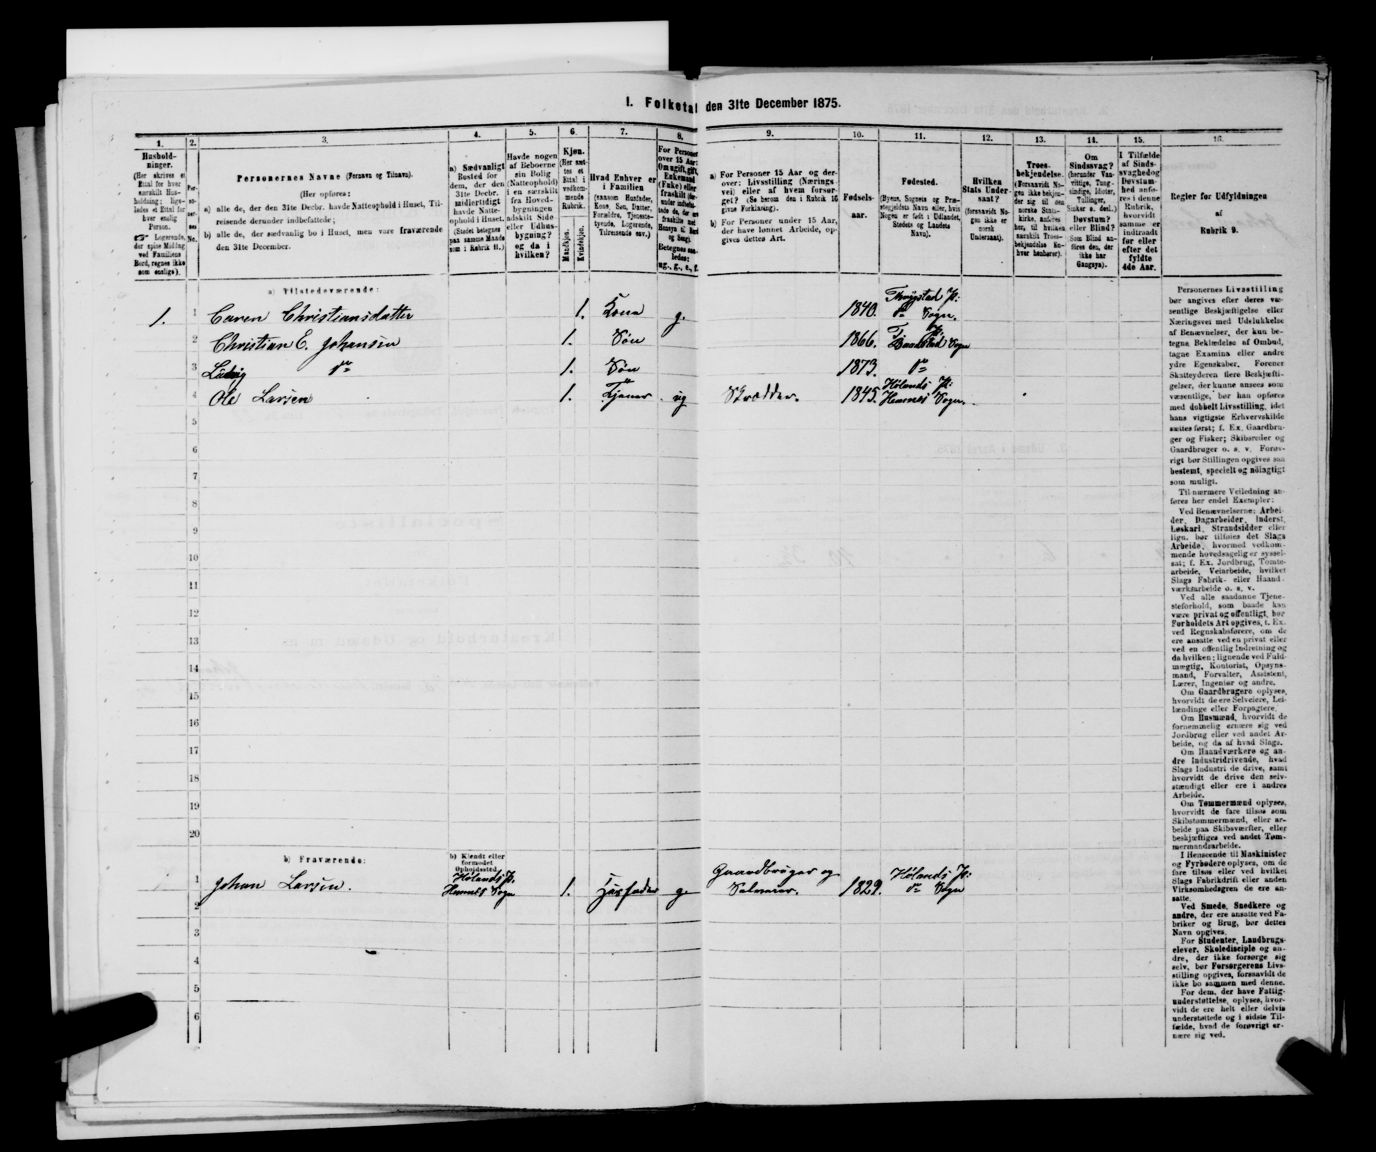 I. Folketal den 31te December 1875.
1.
2.
3.
4.
5.
6.
7.
8.
9.
10.
11.
12.
13.
14.
15.
16.
Hushold-
ninger.
(Her skrives et
Ettal for hver
særskilt Hus-
holdning; lige-
ledes et Ettal for
hver enslig
Person.
☞ Logerende,
der spise Middag
ved Familiens
Bord, regnes ikke
som enslige).
Personernes Navne (Fornavn og Tilnavn).
(Her opføres:
a) alle de, der den 31te Decbr. havde Natteophold i Huset, Til-
reisende derunder indbefattede;
b) alle de, der sædvanlig bo i Huset, men vare fraværende
den 31te December.
a) Sædvanligt
Bosted for
dem, der den
31te Decbr.
midlertidigt
havde Natte-
ophold i Huset.
(Stedet betegnes
paa samme Maade
som i Rubrik 11.)
Havde nogen
af Beboerne
sin Bolig
(Natteophold)
i en særskilt
fra Hoved-
bygningen
adskilt Side-
eller Udhus-
bygning?
og da i
hvilken?
Kjøn.
(Her sæt-
tes et
Ettal i
vedkom-
mende
Rubrik.
Mandkjøn.
Kvindekjøn.
Hvad Enhver er
i Familien
(saasom Husfader,
Kone, Søn, Datter,
Forældre, Tjeneste-
tyende, Logerende,
Tilreisende osv.)
For Personer
over 15 Aar:
Om ugift, gift,
Enkemand
(Enke) eller
fraskilt
a) For Personer 15 Aar og der-
over: Livsstilling (Nærings-
vei) eller af hvem forsør-
get? (Se herom den i Rubrik 16
givne Forklaring).
b) For Personer under 15 Aar,
der have lønnet Arbeide, op-
gives dettes Art.
Fødsels-
aar.
Fødested.
(Byens, Sognets og Præ-
stegjeldets Navn eller, hvis
Nogen er født i Udlandet,
Stedets og Landets
Navn).
Hvilken
Stats Under-
saat?
(forsaavidt No-
gen ikke er
norsk
Undersaat).
Troes-
bekjendelse.
(Forsaavidt No-
gen ikke bekjen-
der sig til den
norske Stats-
kirke, anføres
her, til hvilken
særskilt Troes-
bekjendelse En-
hver henhører).
Om
Sindssvag?
(herunder Van-
vittige, Tung-
sindige, Idioter,
Tullinger,
Sinker o. desl.)
Døvstum?
eller Blind?
Som Blind an-
føres den, der
ikke har
Gangsyn).
I Tilfælde
af Sinds-
svaghed og
Døvstum-
hed anfø-
res i denne
Rubrik,
hvorvidt
samme er
indtraadt
før eller
efter det
fyldte
4de Aar.
Regler for Udfyldningen
af
Rubrik 9.
a) Tilstedeværende:
1. 1 Caren Christiansdatter 1. Kona g. 1840. Thrygstad Pr: do Sogn.
2 Christian E. Johansen 1. Søn 1866. Sogn
3 Ludvig do 1. Søn 1873. do
4 Ole Larsen 1. Tjener ug Skrædder. 1845. Hølands Pr: Hemnes Sogn.
5
6
7
8
9
10
11
12
13
14
15
16
17
18
19
20
b) Fraværende:
b) Kjendt eller
formodet
Opholdssted.
1 Johan Larsen. Hølands Pr. Hemnes Sogn 1. Husfader g. Gaardbrøger og 1829. Hølands Pr: do Sogn
2
3
4
5
6
Personernes Livsstilling
bør angives efter deres væ-
sentlige Beskjæftigelse eller
Næringsvei med Udelukkelse
af Benævnelser, der kun be-
tegne Beklædelse af Ombud,
tagne Examina eller andre
ydre Egenskaber. Forener
Skatteyderen flere Beskjæfti-
gelser, der kunne ansees som
væsentlige, bør han opføres
med dobbelt Livsstilling, idet
hans vigtigste Erhvervskilde
sættes først; f. Ex. Gaardbru-
ger og Fisker; Skibsreder og
Gaardbruger o. s. v. Forøv-
rigt bør Stillingen opgives saa
bestemt, specielt og nøiagtigt
som muligt.
Til nærmere Veiledning an-
føres her endel Exempler:
Ved Benævnelserne: Arbei-
der, Dagarbeider, Inderst,
Løskarl, Strandsidder eller
lign. bør tilføies det Slags
Arbeide, hvormed vedkom-
mende hovedsagelig er syssel-
sat; f. Ex. Jordbrug, Tomte-
arbeide, Veiarbeide, hvilket
Slags Fabrik- eller Haand-
værksarbeide o. s. v.
Ved alle saadanne Tjene-
steforhold, som baade kan
være privat og offentligt, bør
Forholdets Art opgives, f. Ex.
ved Regnskabsførere, om de
ere ansatte ved en privat eller
ved en offentlig Indretning og
da hvilken; lignende ved Fuld-
mægtig, Kontorist, Opsyns-
mand, Forvalter, Assistent,
Lærer, Ingeniør og andre.
Om Gaardbrugere oplyses,
hvorvidt de ere Selveiere, Lei-
lændinge eller Forpagtere.
Om Husmænd, hvorvidt de
fornemmelig ernære sig ved
Jordbrug eller ved andet Ar-
beide, og da af hvad Slags.
Om Haandværkere og an-
dre Industridrivende, hvad
Slags Industri de drive, samt
hvorvidt de drive den selv-
stændigt eller ere i andres
Arbeide.
Om Tømmermænd oplyses,
hvorvidt de fare tilsøs som
Skibstømmermænd, eller ar-
beide paa Skibsværfter, eller
beskjæftiges ved andet Tøm-
mermandsarbeide.
I Henseende til Maskinister
og Fyrbødere oplyses, om de
fare tilsøs eller ved hvilket
Slags Fabrikdrift eller anden
Virksomhedsgren de ere an-
satte.
Ved Smede, Snedkere og
andre, der ere ansatte ved Fa-
briker og Brug, bør dettes
Navn opgives.
For Studenter, Landbrugs-
elever, Skoledisciple og an-
dre, der ikke forsørge sig
selv, bør Forsørgerens Livs-
stilling opgives, forsaavidt de
ikke bo sammen med denne.
For dem, der have Fattig-
understøttelse, oplyses, hvor-
vidt de ere helt eller delvis
understøttede og i sidste Til-
fælde, hvad de forøvrigt er-
nære sig ved.